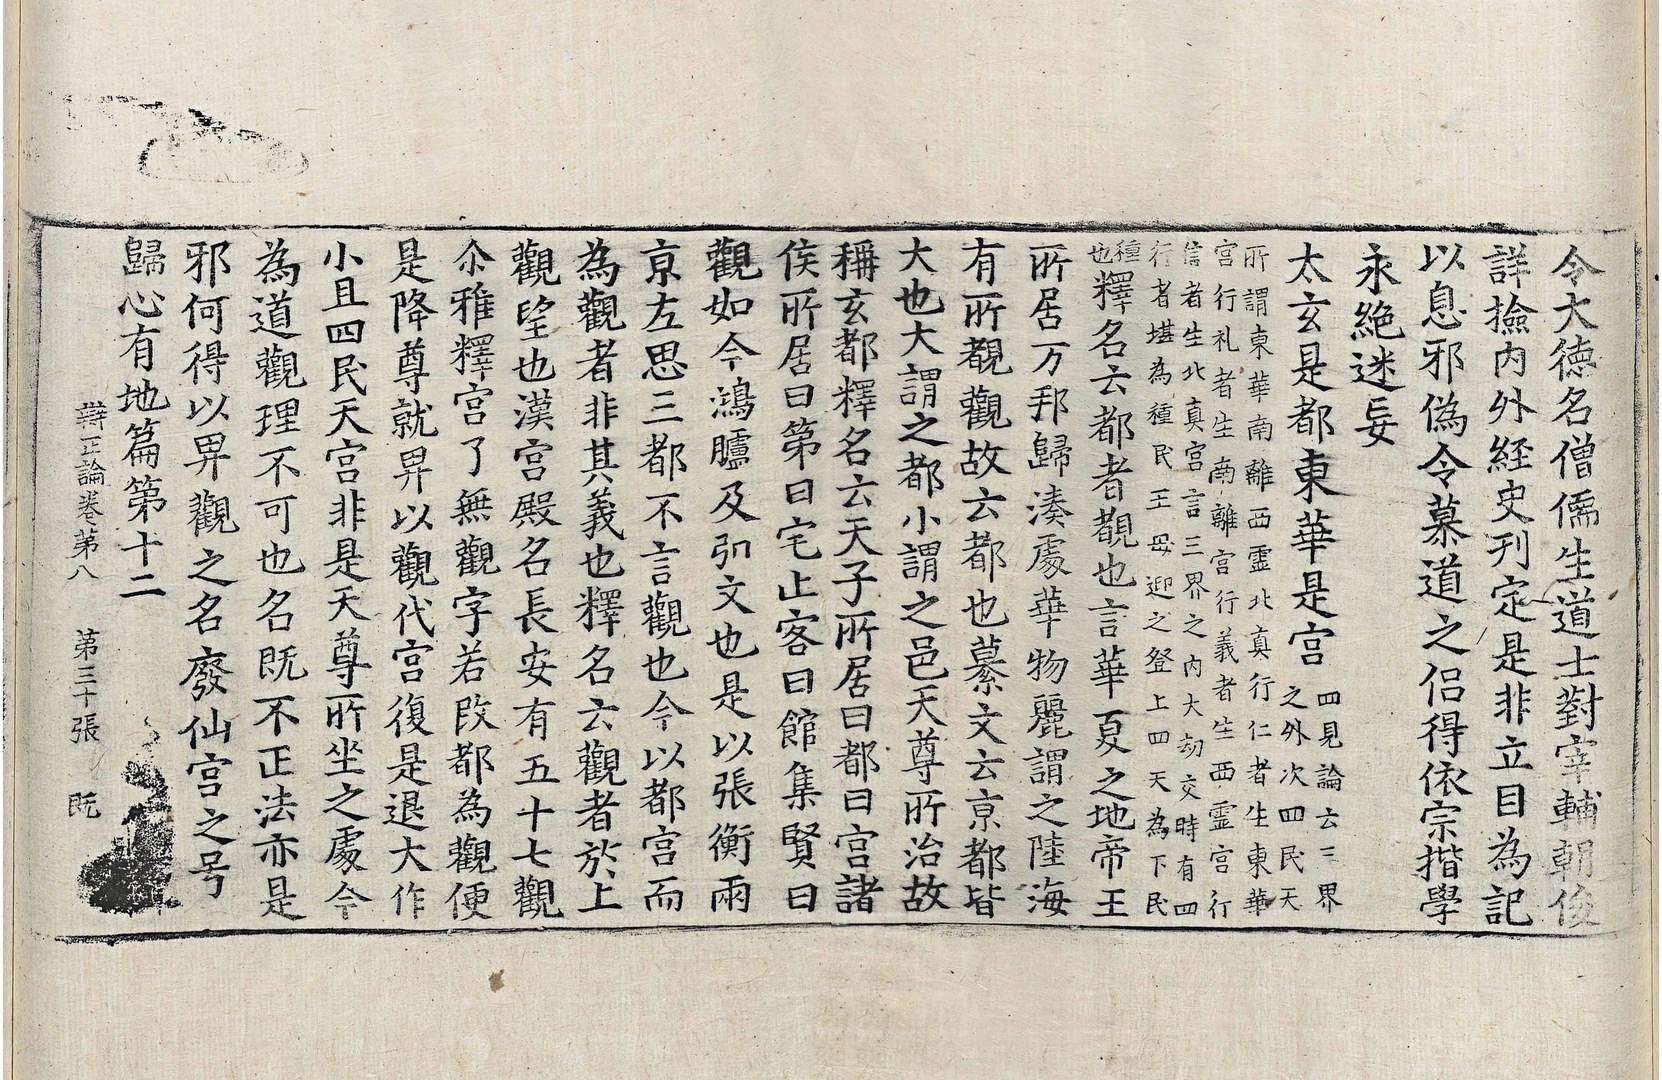 令大德名僧儒生道士對宰輔朝俊
詳撿内外経史刋定是非立目為記
以息邪偽令慕道之侣得依宗揩學
永絶迷妄
太玄是都東華是宫四見論云三界
之外次四民天
所謂東華南離西霊北真行仁者生東華
宫行礼者生南離宫行義者生西霊宫行
信者生北真宫言三界之内大劫交時有四
行者堪為種民王母迎之登上四天為下民
種
也釋名云都者覩也言華夏之地帝王
所居万邦歸湊處華物麗謂之陸海
有所覩觀故云都也纂文云京都皆
大也大謂之都小謂之邑天尊所治故
稱玄都釋名云天子所居曰都曰宫諸
侯所居曰第曰宅止客曰館集賢曰
觀如今鴻臚及弘文也是以張衡兩
京左思三都不言觀也今以都宫而
為觀者非其義也釋名云觀者於上
觀望也漢宫殿名長安有五十七觀
尒雅釋宫了無觀字若改都為觀便
是降尊就畀以觀代宫復是退大作
小且四民天宫非是天尊所坐之處今
為道觀理不可也名既不正法亦是
邪何得以畀觀之名廢仙宫之号
歸心有地篇第十二
辯正論卷第八 第三十張 既